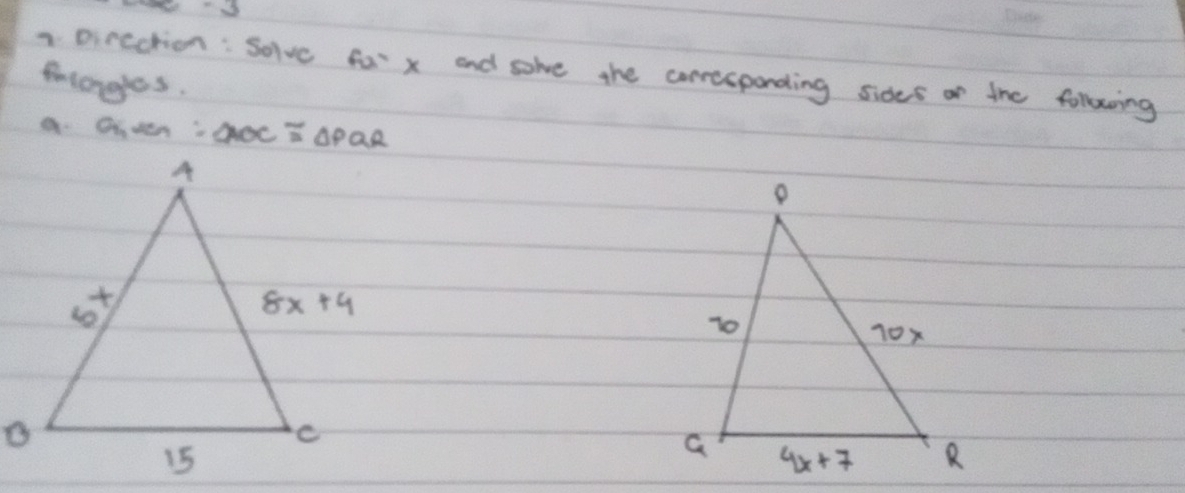 - 3
1. Direction: Solve for x and solve the corresponding sides of the following
triangles.
a. Given: △ABC ≅ △PQR
A
P
5x
8x + 4
10
10x
B
C
Q
R
15
4x + 7